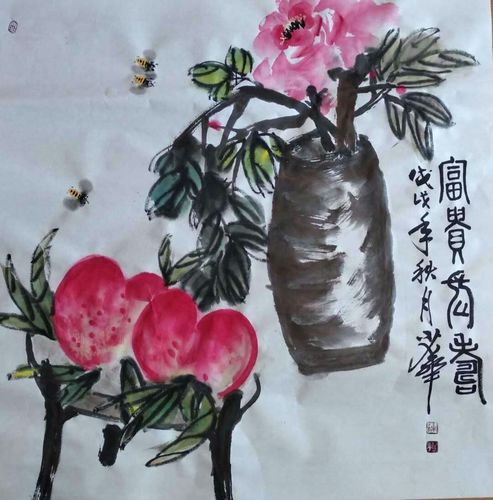 富貴長壽
戊戌年秋月小華